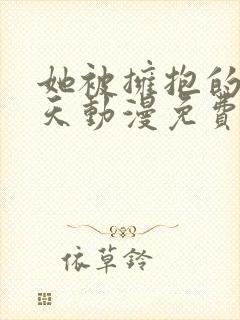 她被擁抱的
天動漫免費
依草鈴